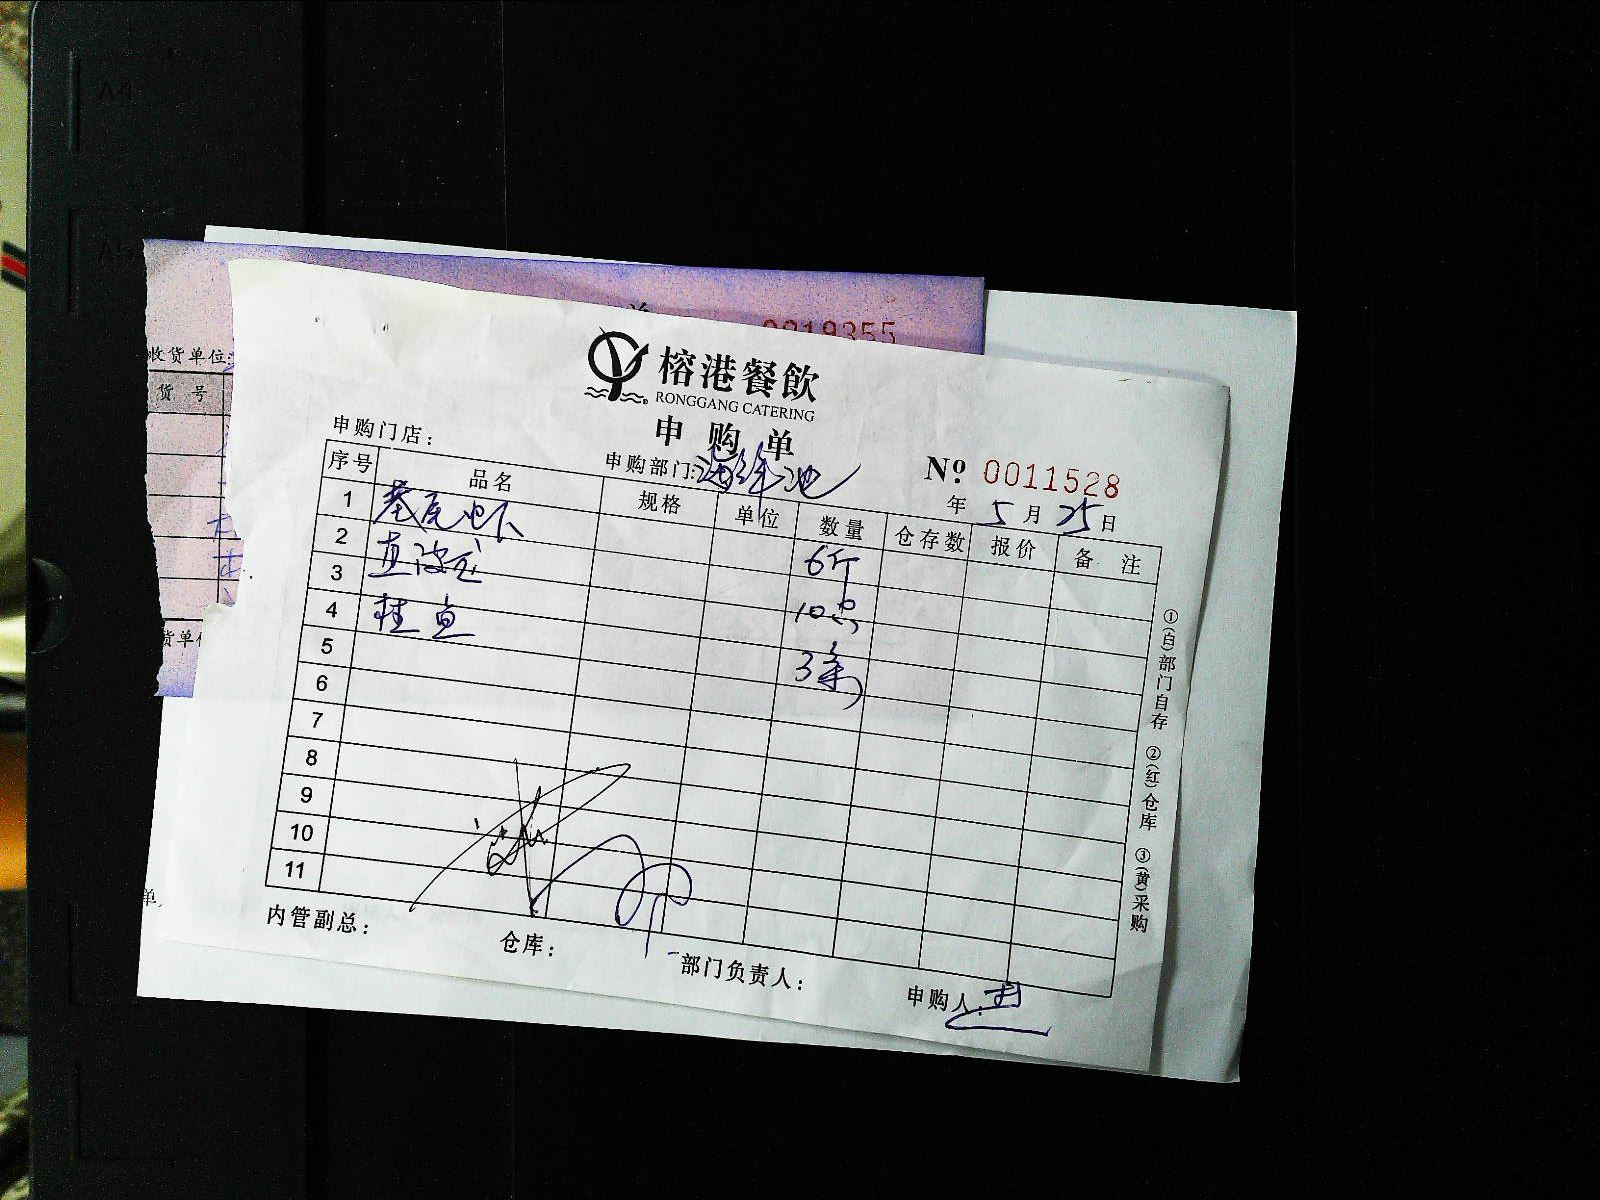 A4
A5
0019355
收货单位
货号
榕港餐飲
RONGGANG CATERING
申购单
申购门店：
申购部门:海鲜池
№ 0011528
年5月25日
序号 品名 规格 单位 数量 仓存数 报价 备注
1 基尾虾 6斤
2
3 10只
4 桂鱼 3条
5
6
7
8
9
10
11
①(白)部门自存 ②(红)仓库 ③(黄)采购
内管副总： 仓库： 部门负责人： 申购人：
货单位
单